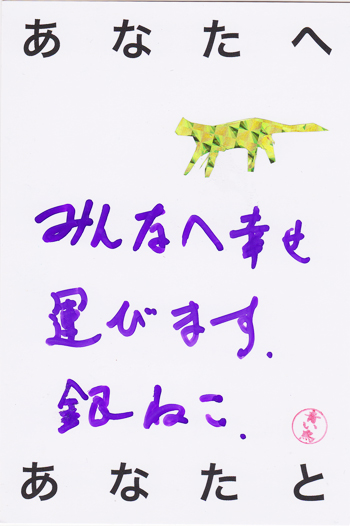 あなたへ
みんなへ幸せ
運びます.
銀ねこ.
あなたと